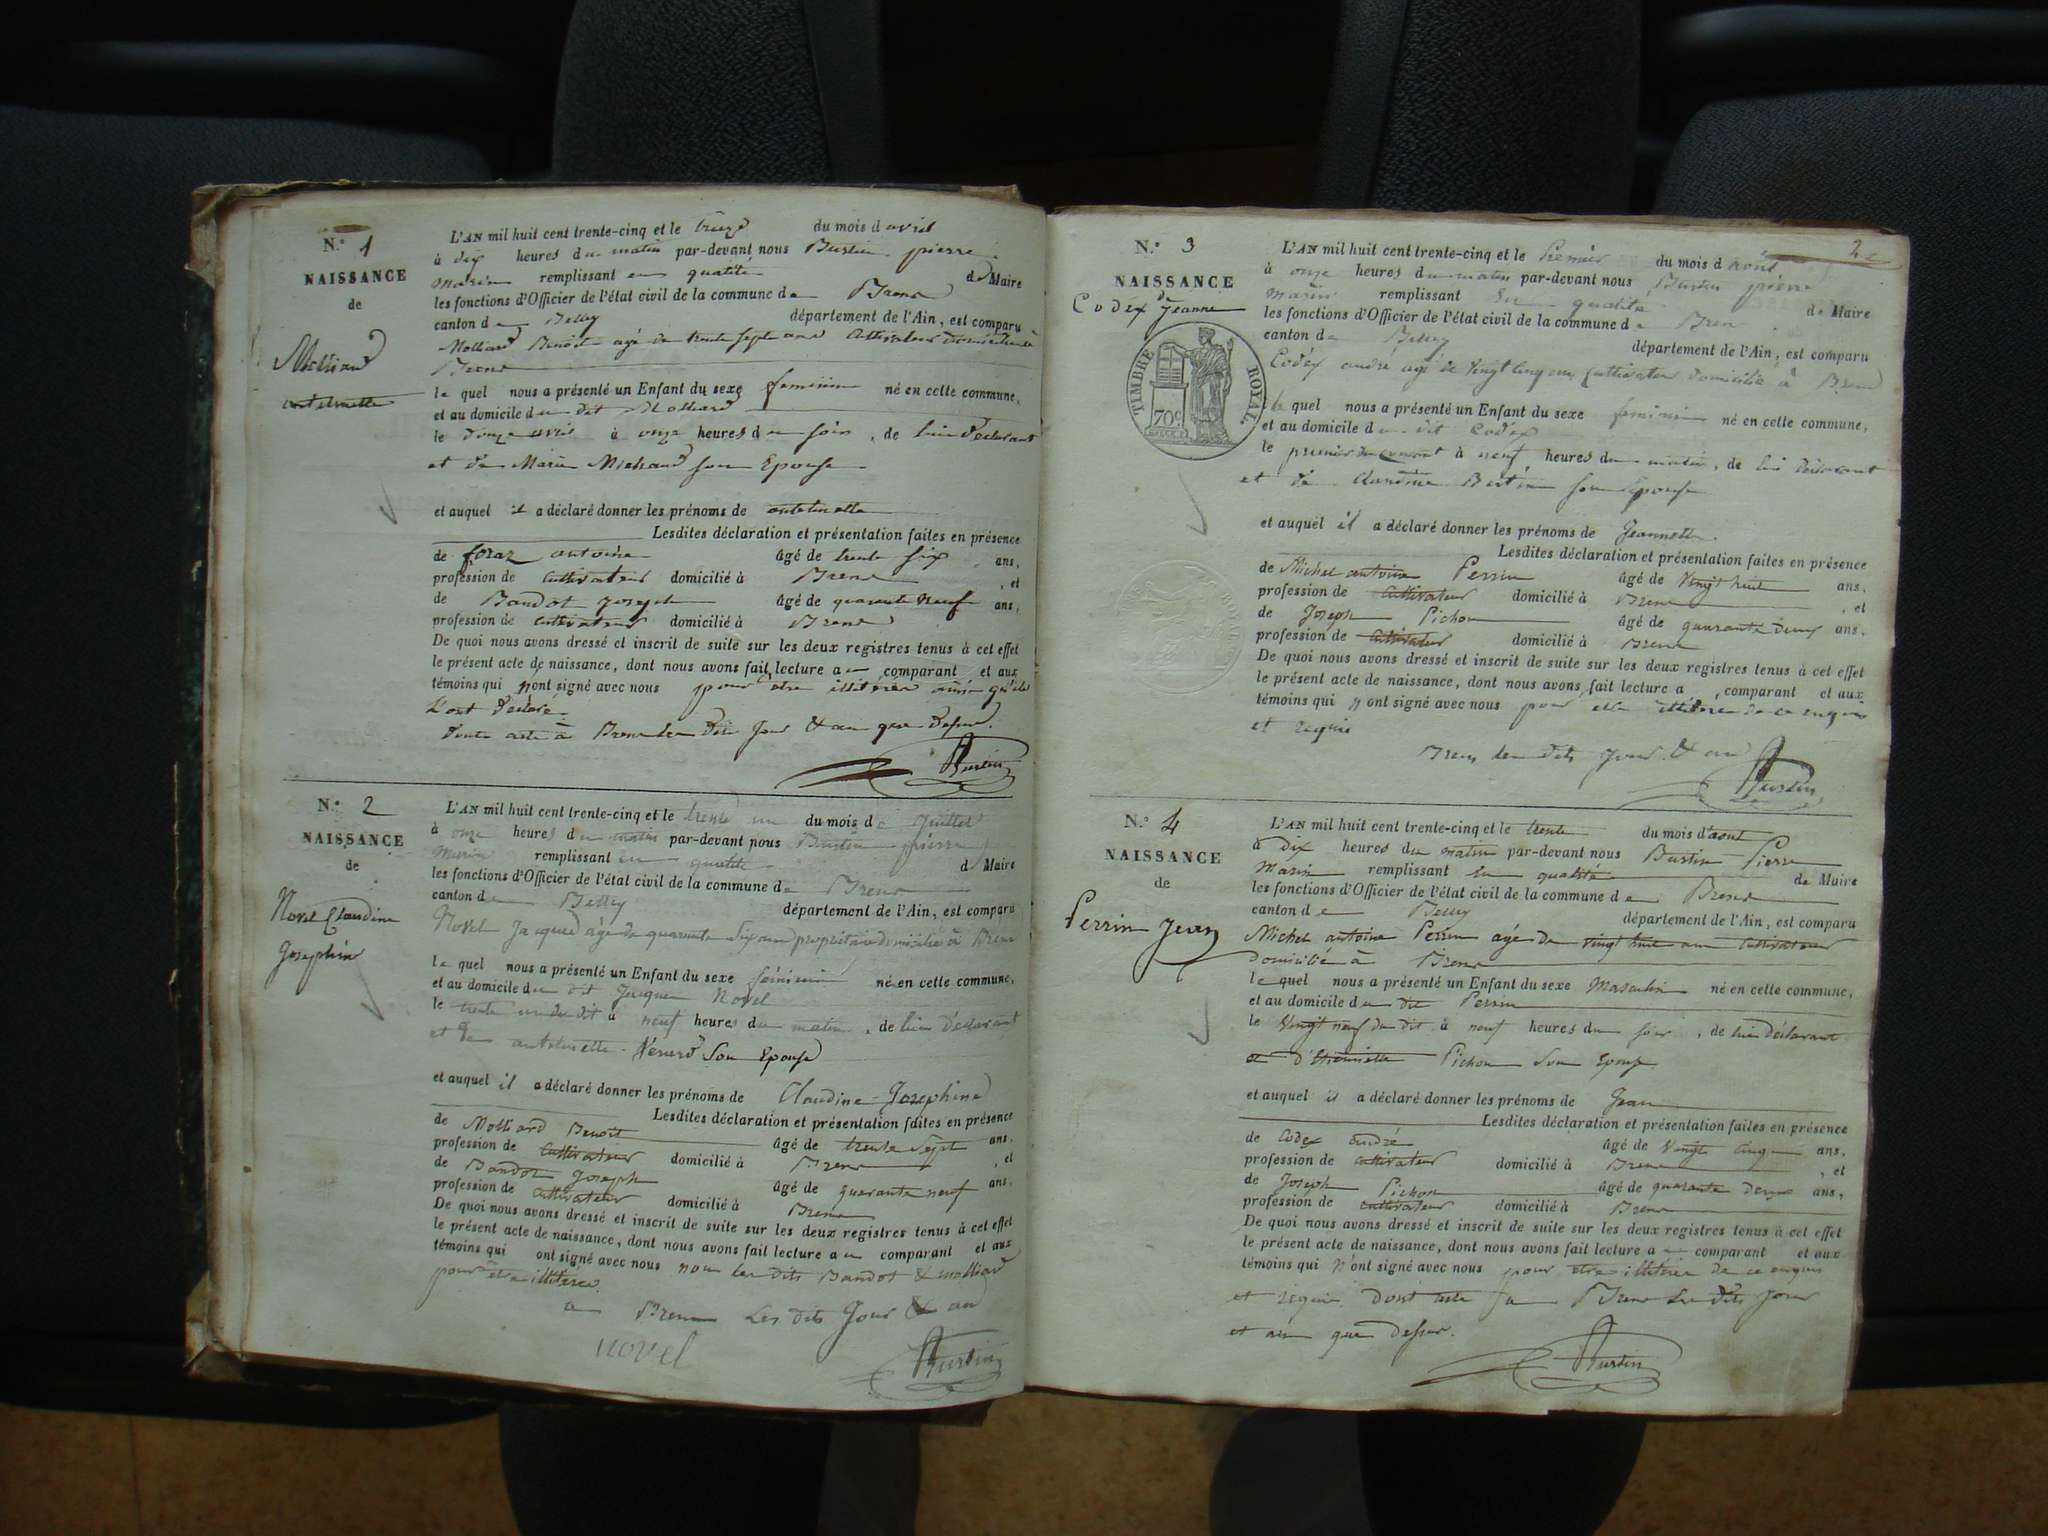 N.° 1
NAISSANCE
de
Molliard
antelmette
L'AN mil huit cent trente-cinq et le treize du mois d avril
à dix heures du matin par-devant nous Burtin pierre
marin remplissant en qualité de Maire
les fonctions d'Officier de l'état civil de la commune de Brens
canton de Belley département de l'Ain, est comparu
Molliard Benoit agé de trente sept ans Cultivateur domicilié à
Brens
le quel nous a présenté un Enfant du sexe feminin né en cette commune,
et au domicile du dit Molliard
le douze avril à onze heures du soir, de lui déclarant
et de Marie Michaud son Epouse
et auquel il a déclaré donner les prénoms de antelmette
Lesdites déclaration et présentation faites en présence
de foraz antoine âgé de trente six ans,
profession de cultivateur domicilié à Brens, et
de Bandot joseph âgé de quarante neuf ans,
profession de cultivateur domicilié à Brens
De quoi nous avons dressé et inscrit de suite sur les deux registres tenus à cet effet
le présent acte de naissance, dont nous avons fait lecture au comparant et aux
témoins qui n'ont signé avec nous pour etre illiterés ainsi qu'ils
l'ont déclaré
dont acte à Brens les dits Jour & an que dessus.
Burtin
N.° 2
NAISSANCE
de
Novel Claudine
Josephine
L'AN mil huit cent trente-cinq et le trente un du mois de juillet
à onze heures du matin par-devant nous Burtin pierre
marin remplissant en qualité de Maire
les fonctions d'Officier de l'état civil de la commune de Brens
canton de Belley département de l'Ain, est comparu
Novel Jacques agé de quarante six ans propriétaire domicilié à Brens
le quel nous a présenté un Enfant du sexe féminin né en cette commune,
et au domicile du dit Jacques Novel
le trente un du dit à neuf heures du matin, de lui déclarant
et de antelmette son Epouse
et auquel il a déclaré donner les prénoms de Claudine Josephine
Lesdites déclaration et présentation faites en présence
de Molliard Benoit âgé de trente sept ans,
profession de cultivateur domicilié à Brens, et
de Bandot Joseph âgé de quarante neuf ans,
profession de cultivateur domicilié à Brens
De quoi nous avons dressé et inscrit de suite sur les deux registres tenus à cet effet
le présent acte de naissance, dont nous avons fait lecture au comparant et aux
témoins qui ont signé avec nous non les dits Bandot & molliard
pour etre illiterés
à Brens Les dits Jour & an
novel
Burtin
2
N.° 3
NAISSANCE
de
Codex Jeanne
TIMBRE ROYAL
70c
L'AN mil huit cent trente-cinq et le Premier du mois d août
à onze heures du matin par-devant nous Burtin pierre
marin remplissant en qualité de Maire
les fonctions d'Officier de l'état civil de la commune de Brens
canton de Belley département de l'Ain, est comparu
Codex andré agé de vingt cinq ans Cultivateur domicilié à Brens
le quel nous a présenté un Enfant du sexe feminin né en cette commune,
et au domicile du dit Codex
le premier du courant à neuf heures du matin, de lui déclarant
et de Claudine Burtin son Epouse
et auquel il a déclaré donner les prénoms de Jeannette
Lesdites déclaration et présentation faites en présence
de Michel antoine Perrin âgé de Vingt huit ans,
profession de cultivateur domicilié à Brens, et
de Joseph Pichon âgé de quarante deux ans,
profession de cultivateur domicilié à Brens
De quoi nous avons dressé et inscrit de suite sur les deux registres tenus à cet effet
le présent acte de naissance, dont nous avons fait lecture a comparant et aux
témoins qui n ont signé avec nous pour etre illiterés de ce enquis
et requis
Brens les dits jour & an
Burtin
N.° 4
NAISSANCE
de
Perrin Jean
L'AN mil huit cent trente-cinq et le trente du mois d'aout
à Dix heures du matin par-devant nous Burtin Pierre
Marin remplissant en qualité de Maire
les fonctions d'Officier de l'état civil de la commune de Brens
canton de Belley département de l'Ain, est comparu
Michel antoine Perrin agé de vingt huit ans Cultivateur
domicilié à Brens
le quel nous a présenté un Enfant du sexe Masculin né en cette commune,
et au domicile du dit Perrin
le vingt neuf du dit à neuf heures du soir, de lui déclarant
et d'Etiennette Pichon son Epouse
et auquel il a déclaré donner les prénoms de Jean
Lesdites déclaration et présentation faites en présence
de Codex andré âgé de vingt cinq ans,
profession de cultivateur domicilié à Brens, et
de Joseph Pichon âgé de quarante deux ans,
profession de cultivateur domicilié à Brens
De quoi nous avons dressé et inscrit de suite sur les deux registres tenus à cet effet
le présent acte de naissance, dont nous avons fait lecture au comparant et aux
témoins qui n'ont signé avec nous pour etre illiterés de ce enquis
et requis dont acte à Brens Les dits jour
et an que dessus.
Burtin